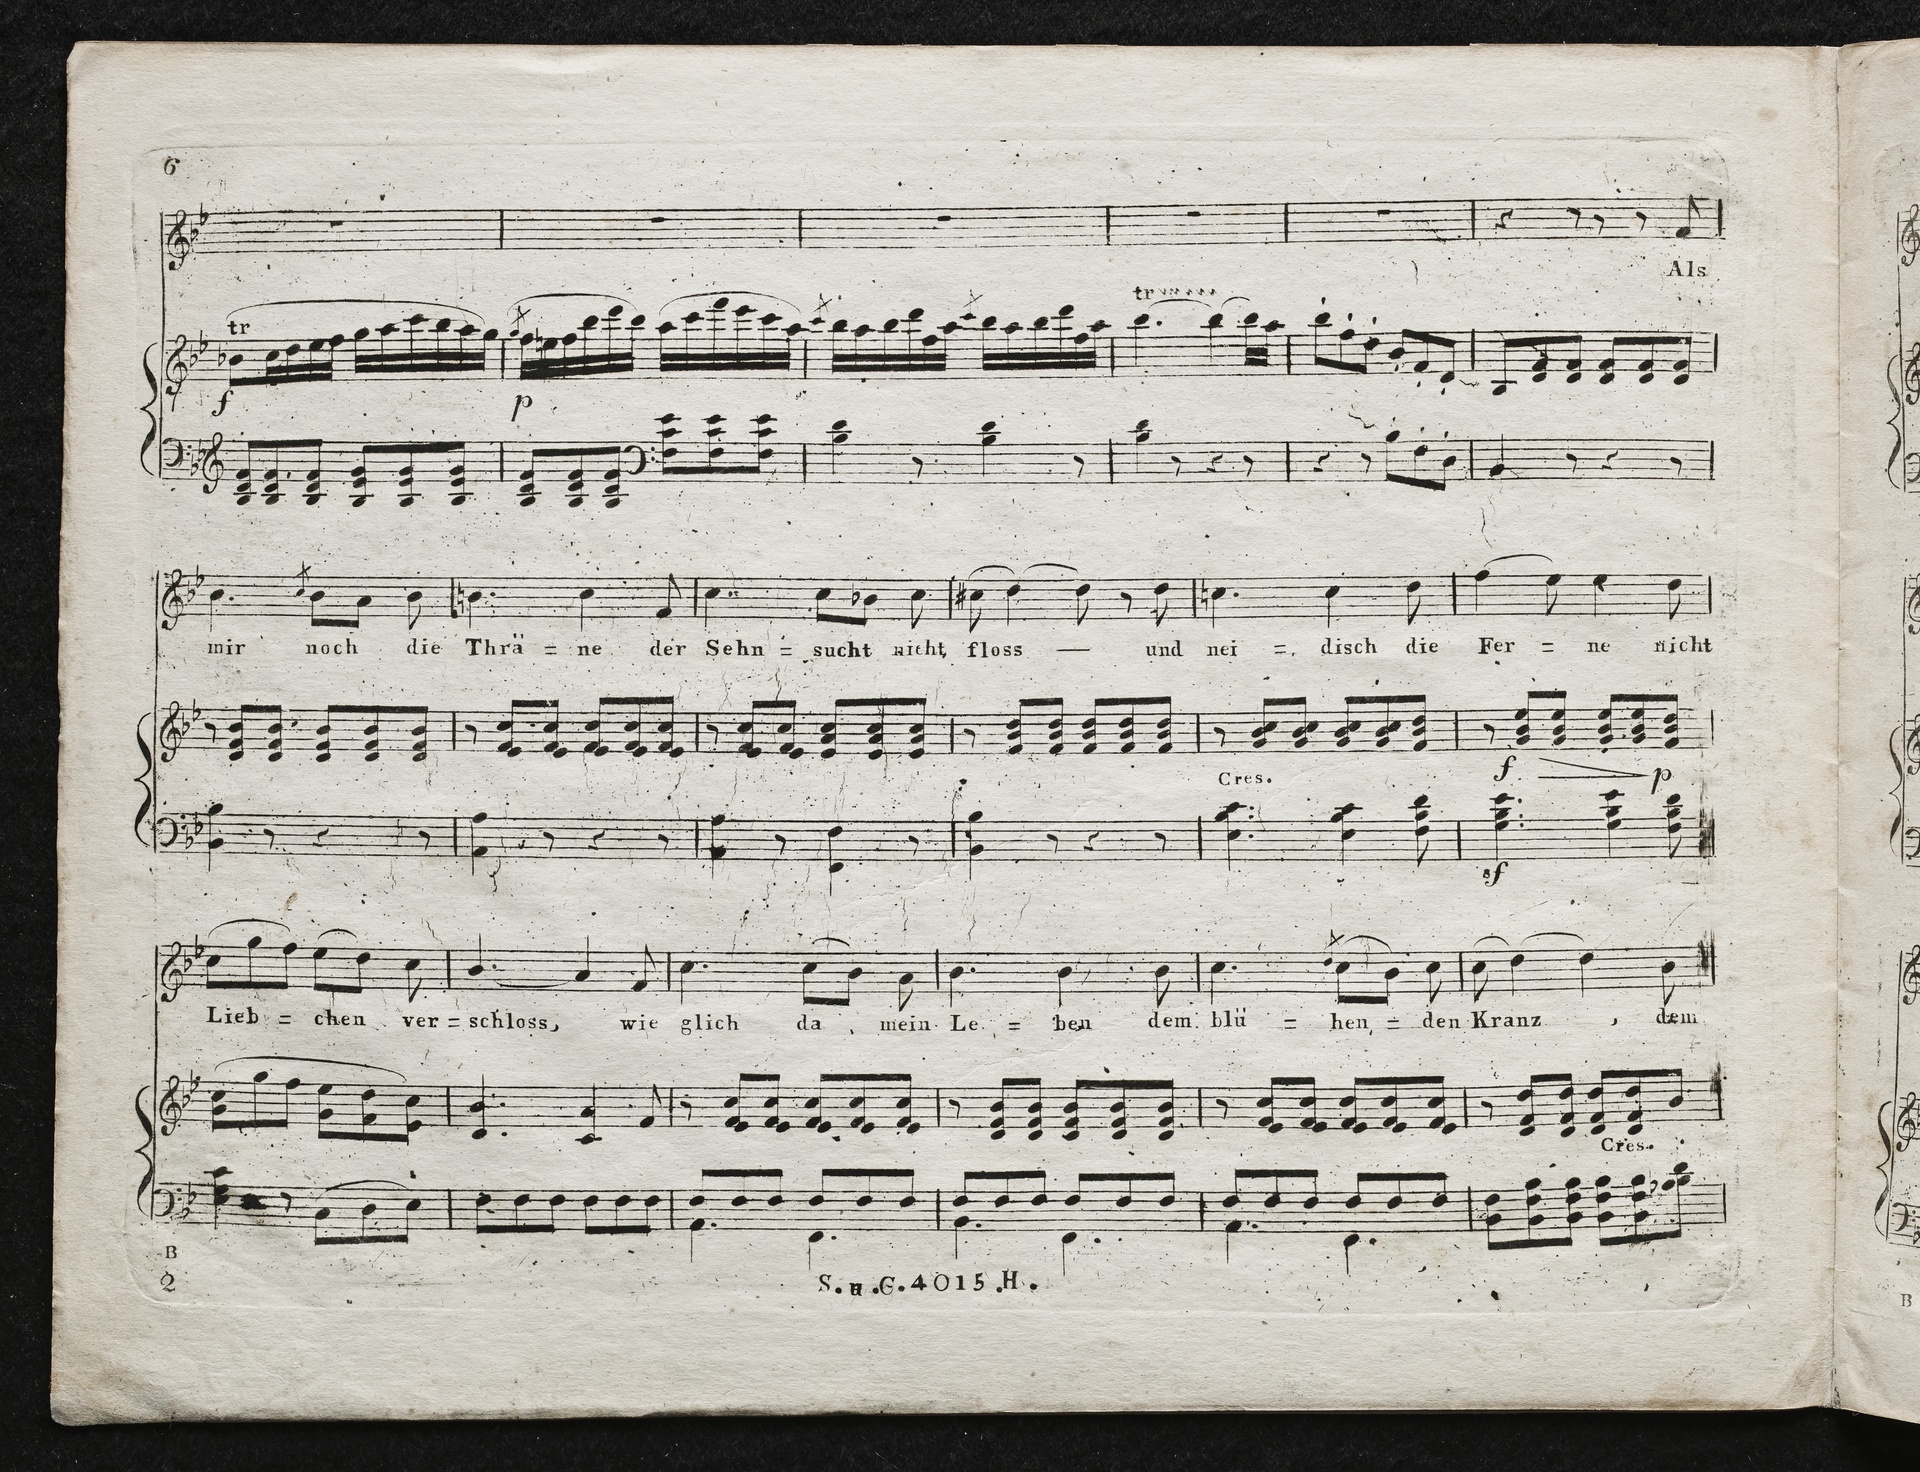 6
Als
tr
tr
f
p
mir noch die Thrä = ne der Sehn = sucht nicht floss — und nei = disch die Fer = ne nicht
Cres.
f
p
sf
Lieb = chen ver = schloss, wie glich da mein Le = ben dem blü = hen = den Kranz , dem
Cres.
B
2
S. u. C. 4015. H.
B